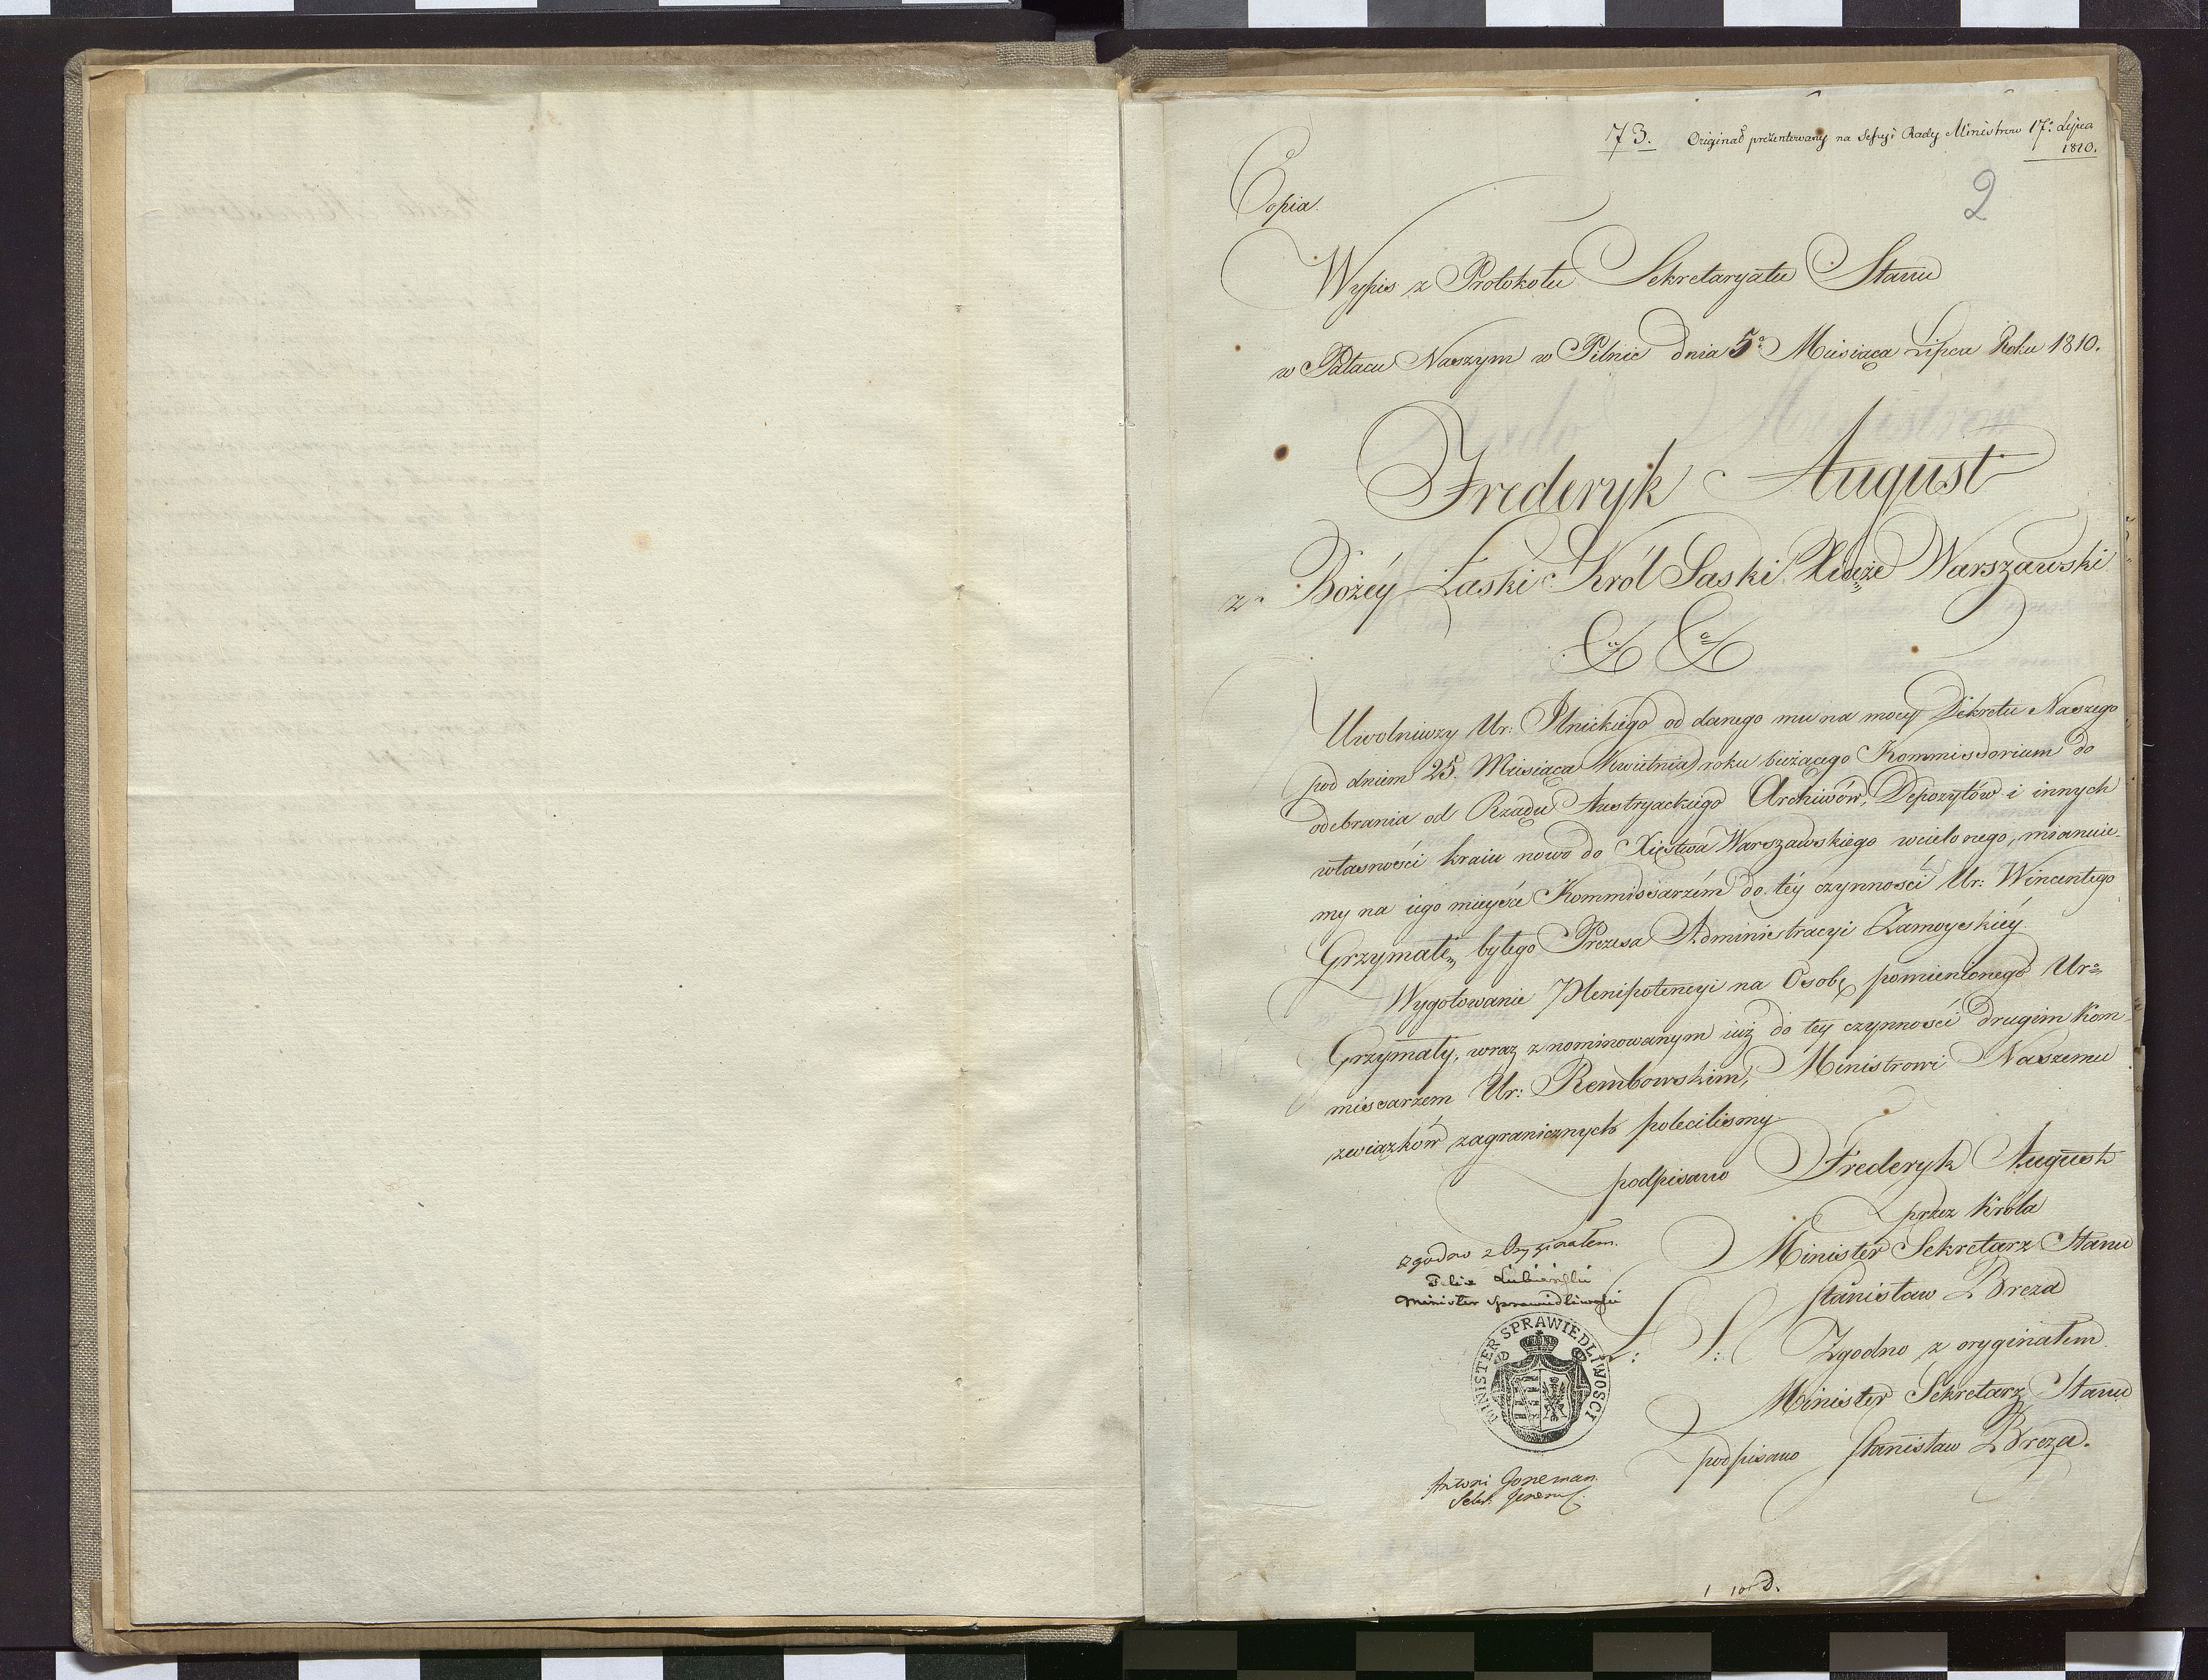 73. Original prezentowany na Sessyi Rady Ministrow 17: Lipca
1810.
2
Copia.
Wypis z Protokołu Sekretaryatu Stanu
w Pałacu Naszym w Pilnic dnia 5º Miesiąca Lipca Roku 1810.
Frederyk August
z Bożéy Łaski Król Saski Xiąże Warszawski
&c &c
Uwolniwszy Ur: Ilnickiego od danego mu na mocy Dekretu Naszego
pod dniem 25. Miesiąca Kwietnia roku bieżącego Kommissorium do
odebrania od Rządu Austryackiego Archiwów, Depozytów i innych
własności kraiu nowo do Xięstwa Warszawskiego wcielonego, mianuie-
my na iego mieysce Kommissarzem do téy czynności Ur: Wincentego
Grzymałę, byłego Prezesa Administracyi Zamoyskiéy.
Wygotowanie Plenipotencyi na Osobę pomienionego Ur=
Grzymały, wraz z nominowanym iuż do tey czynności drugim Kom-
missarzem Ur: Rembowskim, Ministrowi Naszemu
związków zagranicznych poleciliśmy
podpisano Frederyk August
przez Króla
Minister Sekretarz Stanu
Stanisław Breza
L: S: Zgodno z oryginałem
Minister Sekretarz Stanu
podpisano Stanisław Breza.
Zgodno z Oryginałem.
Felix Łubieński
Minister Sprawiedliwości
MINISTER SPRAWIEDLIWOSCI
Antoni
Sekr. Jener.